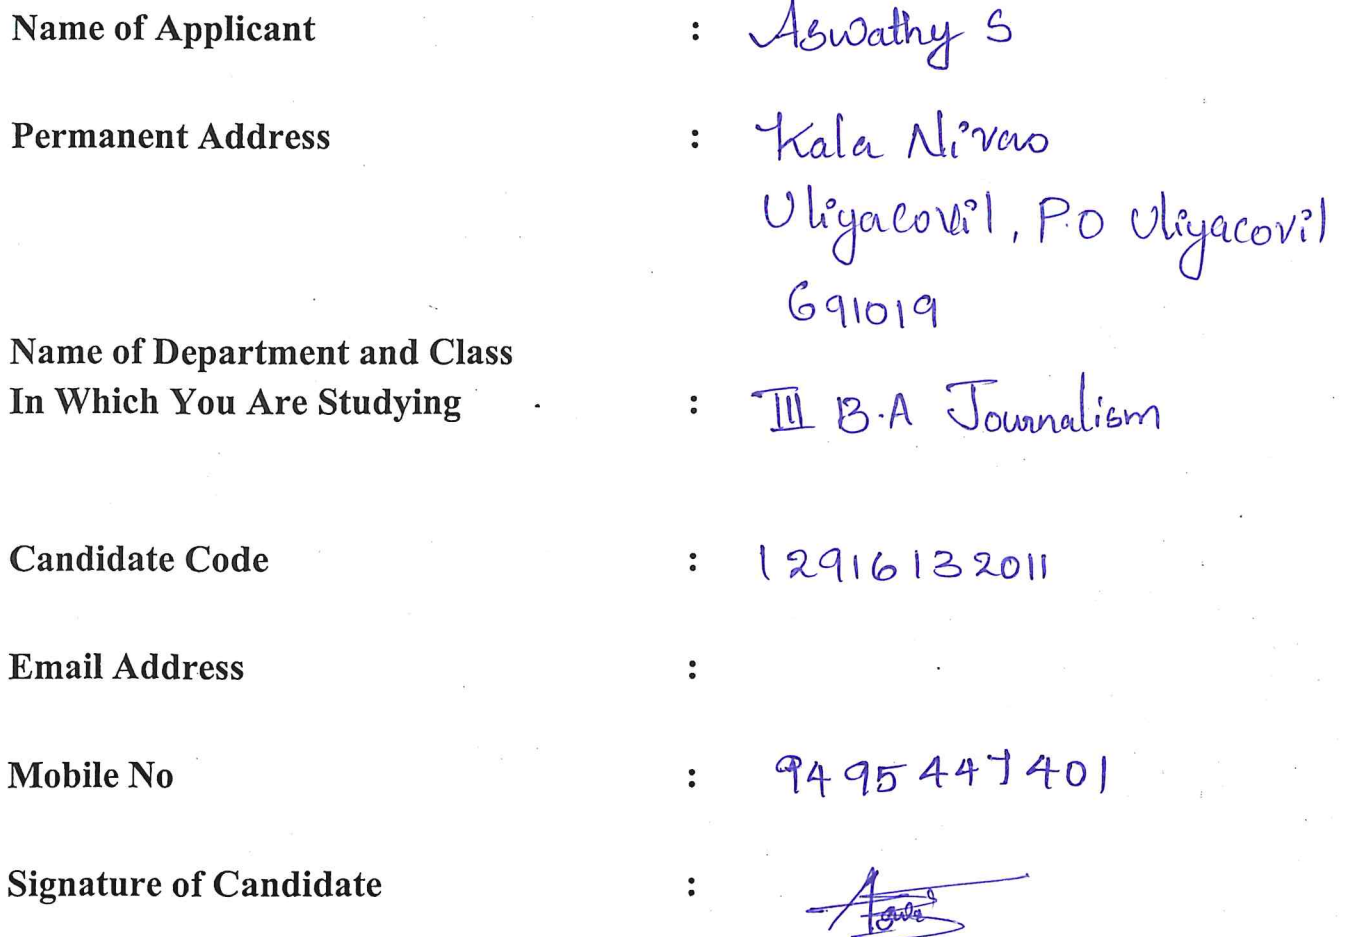 Name of Applicant : Aswathy S
Permanent Address : Kala Nivas
Uliyacovil, P.O Uliyacovil
691019
Name of Department and Class
In Which You Are Studying : III B.A Journalism
Candidate Code : 12916132011
Email Address :
Mobile No : 9495447401
Signature of Candidate :